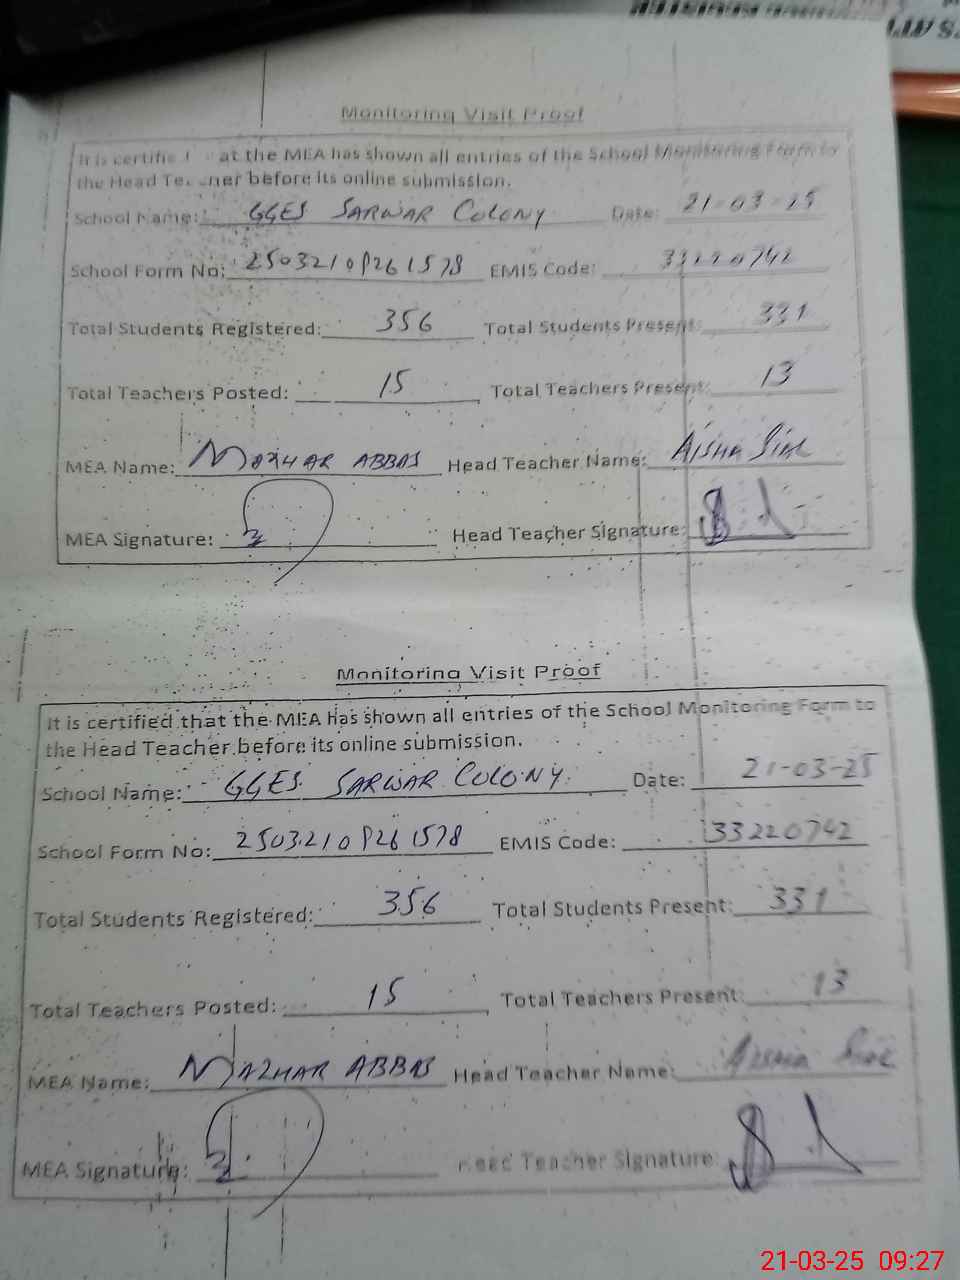 Monitoring Visit Proof
It is certifie at the MEA has shown all entries of the School Monitoring Form to
the Head Teacher before its online submission.
School Name: GGES SARWAR COLONY Date: 21-03-25
School Form No: EMIS Code: 33220742
Total Students Registered: 356 Total Students Present: 331
Total Teachers Posted: 15 Total Teachers Present: 13
MEA Name: MAZHAR ABBAS Head Teacher Name: AISHA
MEA Signature: Head Teacher Signature:
Monitoring Visit Proof
It is certified that the MEA has shown all entries of the School Monitoring Form to
the Head Teacher before its online submission.
School Name: GGES SARWAR COLONY. Date: 21-03-25
School Form No: EMIS Code: 33220742
Total Students Registered: 356 Total Students Present: 331
Total Teachers Posted: 15 Total Teachers Present: 13
MEA Name: MAZHAR ABBAS Head Teacher Name: AISHA
MEA Signature: Head Teacher Signature:
21-03-25 09:27